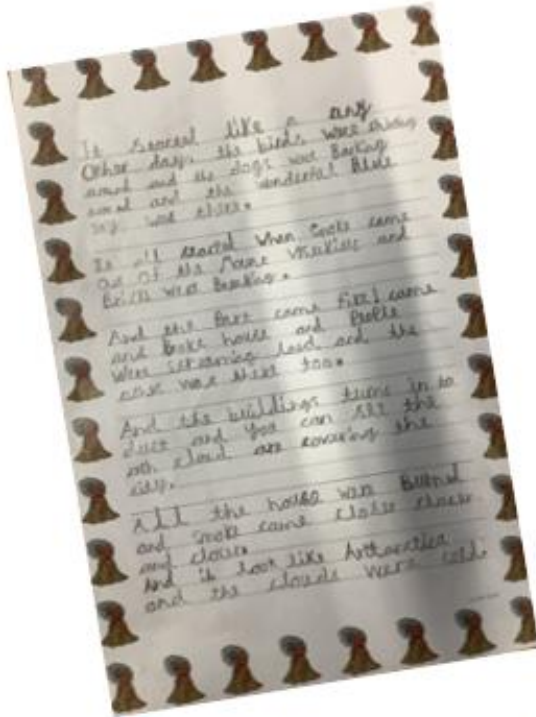 It started like a any
Other day, the birds were
around and the dogs were Barking
and the wonderful Blue
sky was there.
It all started when smoke came
out of the Mount and
Bricks were Breaking.
And the came First came
and Broke house and People
were screaming loud and the
was there too.
And the buildings turns in to
dust and you can see the
ash cloud are covering the
city.
All the house were Burned
and smoke came closer closer
and closer.
And it look like Antharctica
and the clouds were cold.